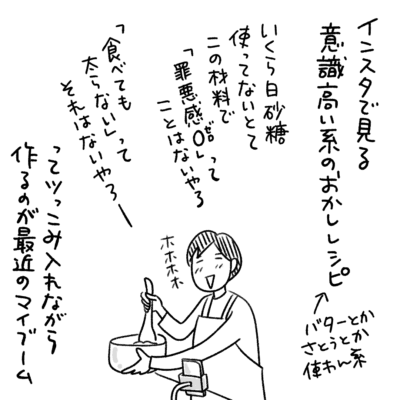 インスタで見る
意識高い系のおかしレシピ
バターとか
さとうとか
使わん系
いくら白砂糖
使ってないとて
この材料で
「罪悪感ゼロ」って
ことはないやろ
「食べても
太らない」って
それはないやろー
ホホホホ
ってツっこみ入れながら
作るのが最近のマイブーム